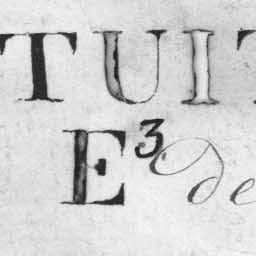 TUIT
E³ de